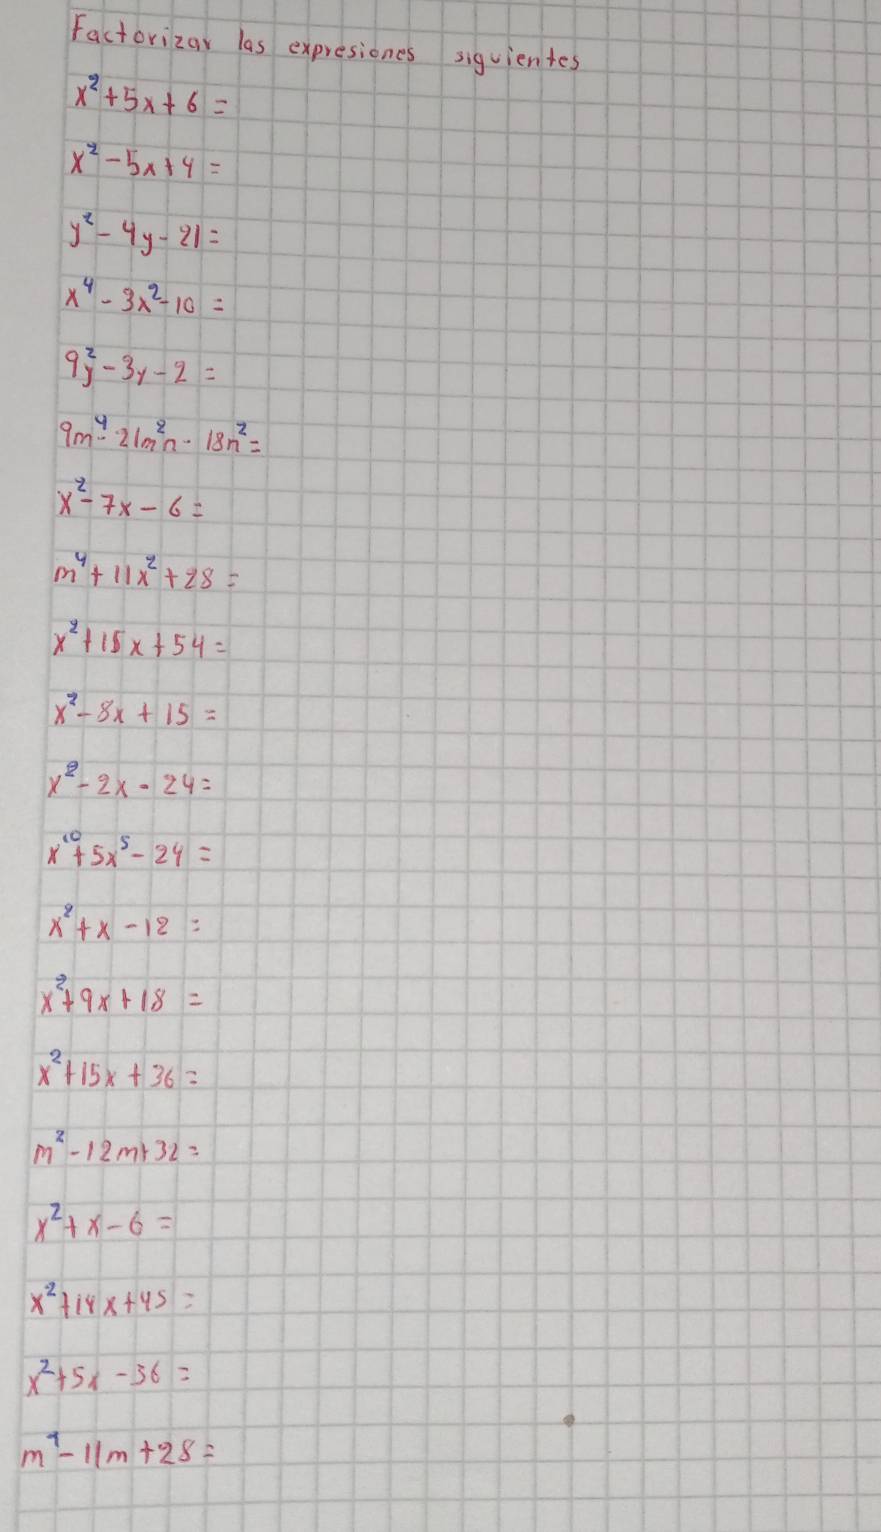 Factorizar las expresiones siguientes
x²+5x+6=
x²-5x+4=
y²-4y-21=
x⁴-3x²-10=
9y²-3y-2=
9m⁴-21m²n-18n²=
x²-7x-6=
m⁴+11x²+28=
x²+15x+54=
x²-8x+15=
x²-2x-24=
x¹⁰+5x⁵-24=
x²+x-12=
x²+9x+18=
x²+15x+36=
m²-12m+32=
x²+x-6=
x²+14x+45=
x²+5x-36=
m⁴-11m+28=